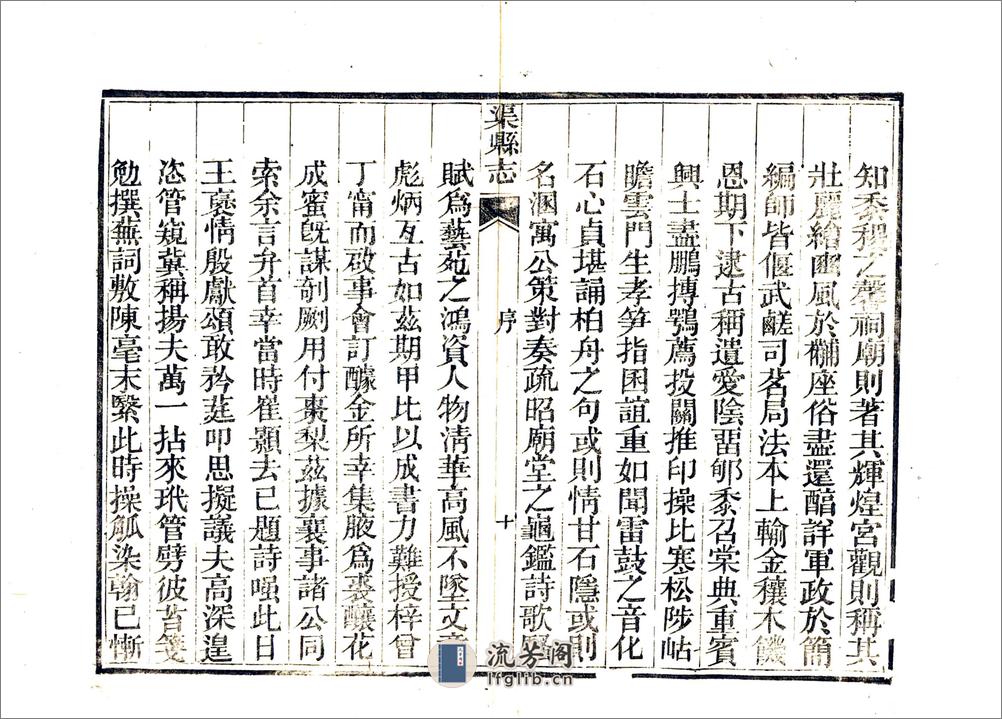 知黍稷之馨祠廟則著其輝煌宮觀則稱其
壯麗繪豳風於黼座俗盡還醕詳軍政於簡
編師皆偃武鹺司茗局法本上輸金穰木饑
恩期下逮古稱遺愛陰畱郇黍召棠典重賓
興士盡鵬摶鶚薦投關推印操比寒松陟岵
瞻雲門生孝笋指囷誼重如聞雷鼓之音化
石心貞堪誦柏舟之句或則情甘石隱或則
名溷寓公策對奏疏昭廟堂之龜鑑詩歌
渠縣志
序
十
賦爲藝苑之鴻資人物淸華高風不墜文章
彪炳亙古如茲期甲比以成書力難授梓曾
丁甯而啟事會訂醵金所幸集腋爲裘釀花
成蜜旣謀剞劂用付棗梨茲據襄事諸公同
索余言弁首幸當時崔顥去已題詩嗤此日
王襃情殷獻頌敢矜莛叩思擬議夫高深遑
恣管窺冀稱揚夫萬一拈來玳管劈彼苔箋
勉撰蕪詞敷陳毫末繄此時操觚染翰已慚
流芳阁
lfglib.cn